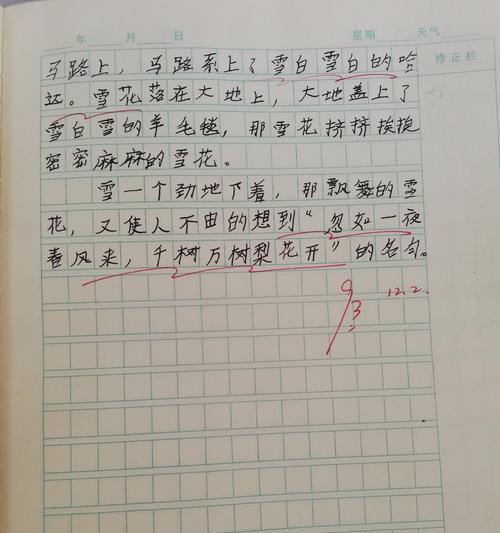 年 月 日 星期 天气
修正栏
马路上，马路系上了雪白雪白的哈
达。雪花落在大地上，大地盖上了
雪白雪的羊毛毯，那雪花挤挤挨挨
密密麻麻的雪花。
雪一个劲地下着，那飘舞的雪
花，又使人不由的想到“忽如一夜
春风来，千树万树梨花开”的名句。
93
12.2.